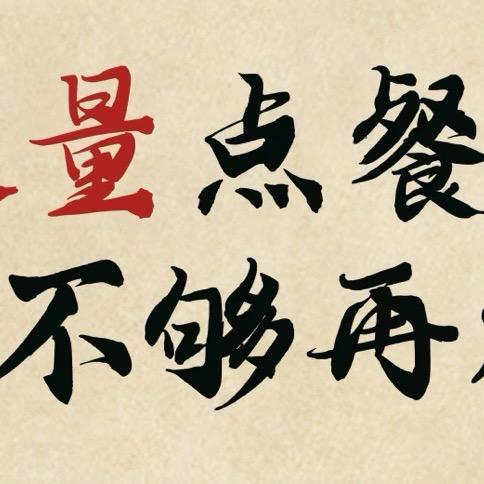 量点餐
不够再